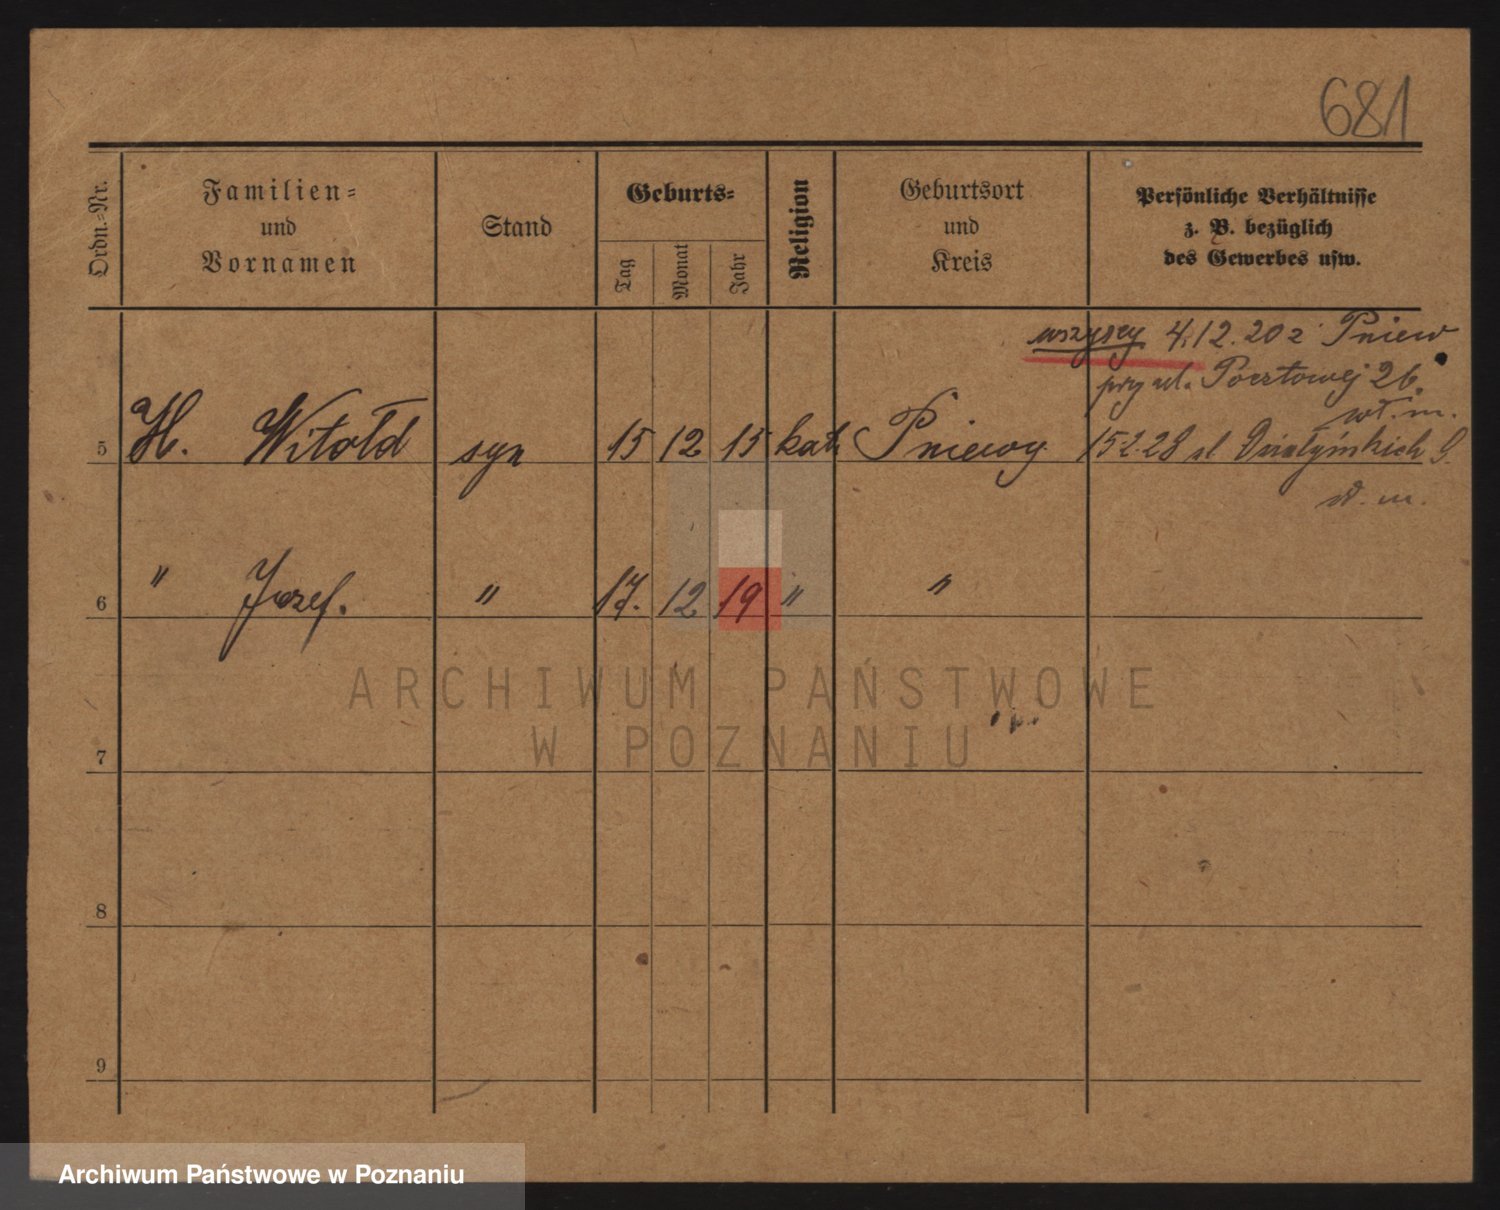 681
Ordn.-Nr.
Familien-
und
Vornamen
Stand
Geburts-
Tag
Monat
Jahr
Religion
Geburtsort
und
Kreis
Persönliche Verhältnisse
z. B. bezüglich
des Gewerbes usw.
wszyscy 4.12.20 z Pniew
przy ul. Pocztowej 26.
wł. m.
5 H. Witold syn 15 12 15 kath Pniewy 15.2.28 ul Działyńskich
m.
6 " Jozef. " 17. 12 19 " "
7
8
9
ARCHIWUM PAŃSTWOWE
W POZNANIU
Archiwum Państwowe w Poznaniu